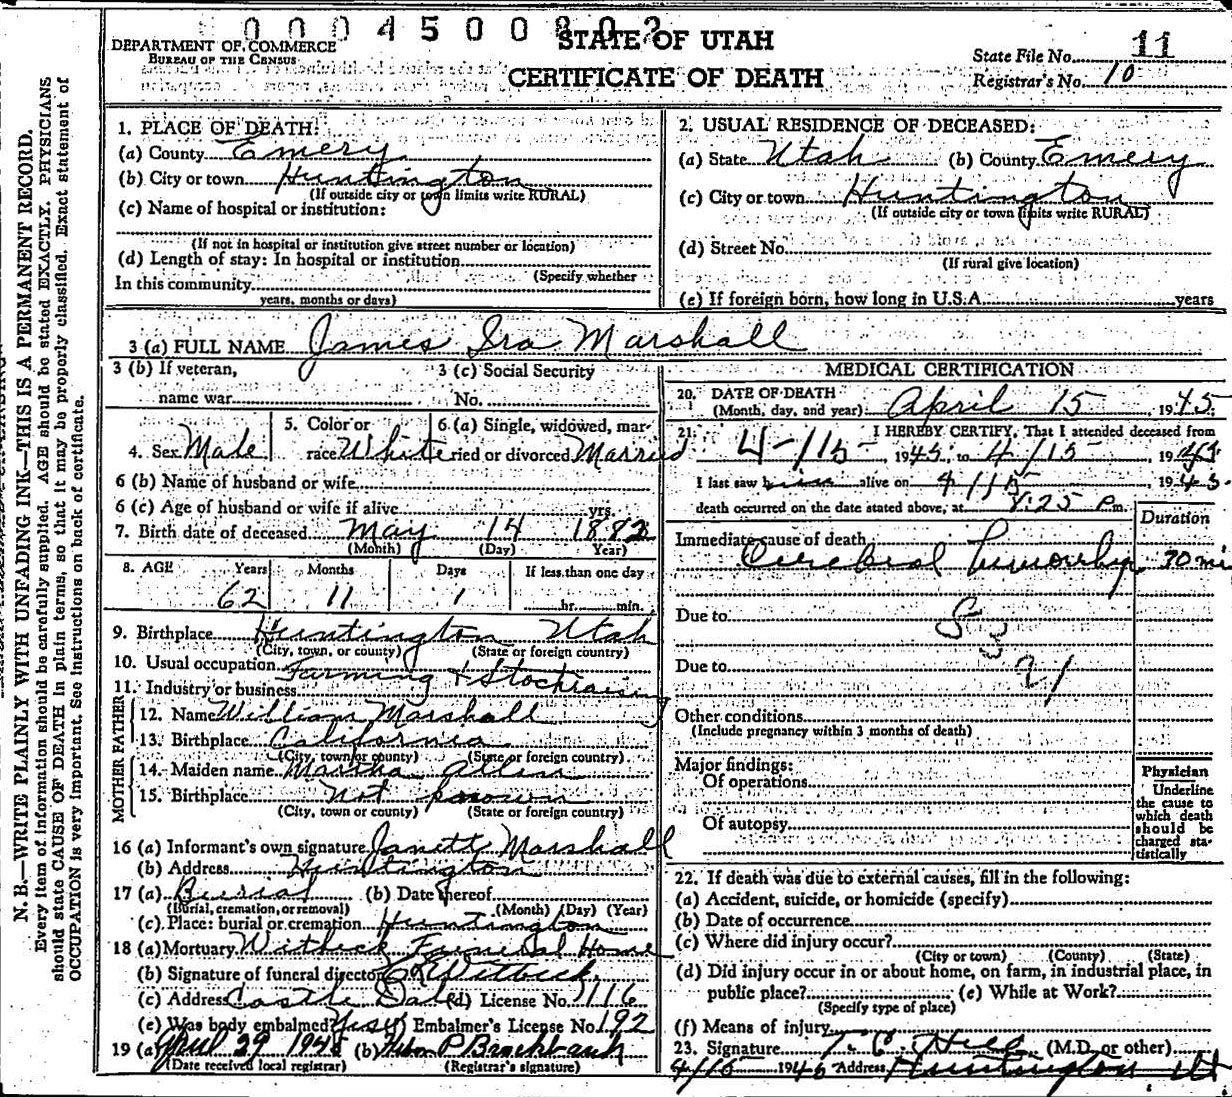 0 0 0 4 5 0 0 8 0 2
DEPARTMENT OF COMMERCE
BUREAU OF THE CENSUS
STATE OF UTAH
CERTIFICATE OF DEATH
State File No. 11
Registrar's No. 10
N. B.—WRITE PLAINLY WITH UNFADING INK—THIS IS A PERMANENT RECORD.
Every item of information should be carefully supplied. AGE should be stated EXACTLY. PHYSICIANS
should state CAUSE OF DEATH in plain terms, so that it may be properly classified. Exact statement of
OCCUPATION is very important. See instructions on back of certificate.
1. PLACE OF DEATH:
(a) County Emery
(b) City or town Huntington
(If outside city or town limits write RURAL)
(c) Name of hospital or institution:
(If not in hospital or institution give street number or location)
(d) Length of stay: In hospital or institution
(Specify whether
In this community
years, months or days)
2. USUAL RESIDENCE OF DECEASED:
(a) State Utah (b) County Emery
(c) City or town Huntington
(If outside city or town limits write RURAL)
(d) Street No.
(If rural give location)
(e) If foreign born, how long in U.S.A. years
3 (a) FULL NAME James Ira Marshall
3 (b) If veteran, 3 (c) Social Security
name war No.
4. Sex Male 5. Color or race White 6. (a) Single, widowed, married or divorced Married
6 (b) Name of husband or wife
6 (c) Age of husband or wife if alive yrs.
7. Birth date of deceased May 14 1882
(Month) (Day) Year)
8. AGE Years Months Days If less than one day
62 11 1 hr. min.
9. Birthplace Huntington Utah
(City, town, or county) (State or foreign country)
10. Usual occupation Farming & Stockraising
11. Industry or business
FATHER
12. Name William Marshall
13. Birthplace California
(City, town or county) (State or foreign country)
MOTHER
14. Maiden name Martha Allen
15. Birthplace Not known
(City, town or county) (State or foreign country)
16 (a) Informant's own signature Janett Marshall
(b) Address Huntington
17 (a) Burial (b) Date thereof
(Burial, cremation, or removal) (Month) (Day) (Year)
(c) Place: burial or cremation Huntington
18 (a) Mortuary Witbeck Funeral Home
(b) Signature of funeral director Witbeck
(c) Address Castle Dale (d) License No. 1116
(e) Was body embalmed? Yes (f) Embalmer's License No. 192
19 (a) April 29 1945 (b) P Brockbank
(Date received local registrar) (Registrar's signature)
MEDICAL CERTIFICATION
20. DATE OF DEATH
(Month, day, and year): April 15 1945
21. I HEREBY CERTIFY, That I attended deceased from
4-15- 1945, to 4/15 1945
I last saw him alive on 4/15 1945.
death occurred on the date stated above, at 8:25 P m.
Duration
Immediate cause of death
Cerebral 30 min
Due to
Due to
Other conditions
(Include pregnancy within 3 months of death)
Major findings:
Of operations
Of autopsy
Physician
Underline
the cause to
which death
should be
charged sta-
tistically
22. If death was due to external causes, fill in the following:
(a) Accident, suicide, or homicide (specify)
(b) Date of occurrence
(c) Where did injury occur?
(City or town) (County) (State)
(d) Did injury occur in or about home, on farm, in industrial place, in
public place? (e) While at Work?
(Specify type of place)
(f) Means of injury
23. Signature T. C. Hill (M.D. or other)
4/15 1945 Address Huntington Ut